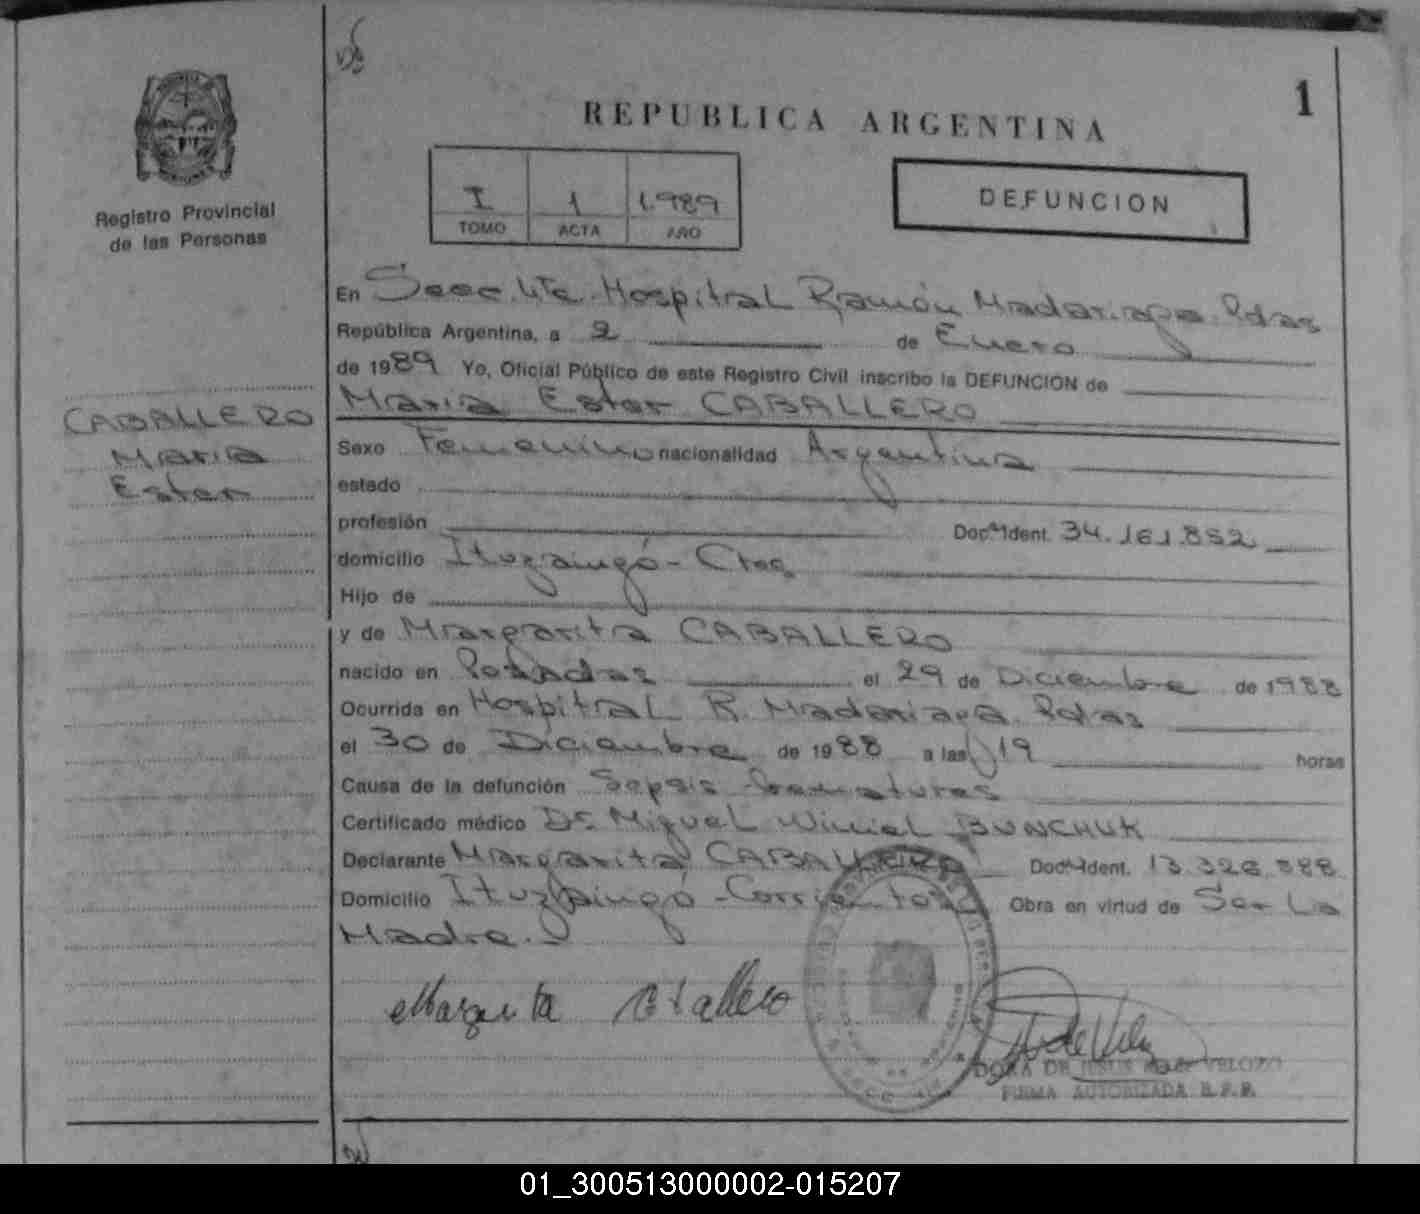 1
REPUBLICA ARGENTINA
I 1 1.989
TOMO ACTA AÑO
DEFUNCION
Registro Provincial
de las Personas
CABALLERO
Maria
Ester
En Secc. 4ta. Hospital Ramón Madariaga. Pdas
República Argentina, a 2 de Enero
de 1989 Yo, Oficial Público de este Registro Civil inscribo la DEFUNCION de
Maria Ester CABALLERO
Sexo Femenino nacionalidad Argentina
estado
profesión Doc. Ident. 34.161.852
domicilio Ituzaingó - Ctes
Hijo de
y de Margarita CABALLERO
nacido en Posadas el 29 de Diciembre de 1988
Ocurrida en Hospital R. Madariaga. Pdas
el 30 de Diciembre de 1988 a las 19 horas
Causa de la defunción Sepsis
Certificado médico Dr. Miguel BUNCHUK
Declarante Margarita CABALLERO Doc. Ident. 13.326.888
Domicilio Ituzaingó - Corrientes Obra en virtud de Ser La
Madre.
Margarita Caballero
DORA DE JESUS VELOZO
FIRMA AUTORIZADA R.P.P.
01_300513000002-015207